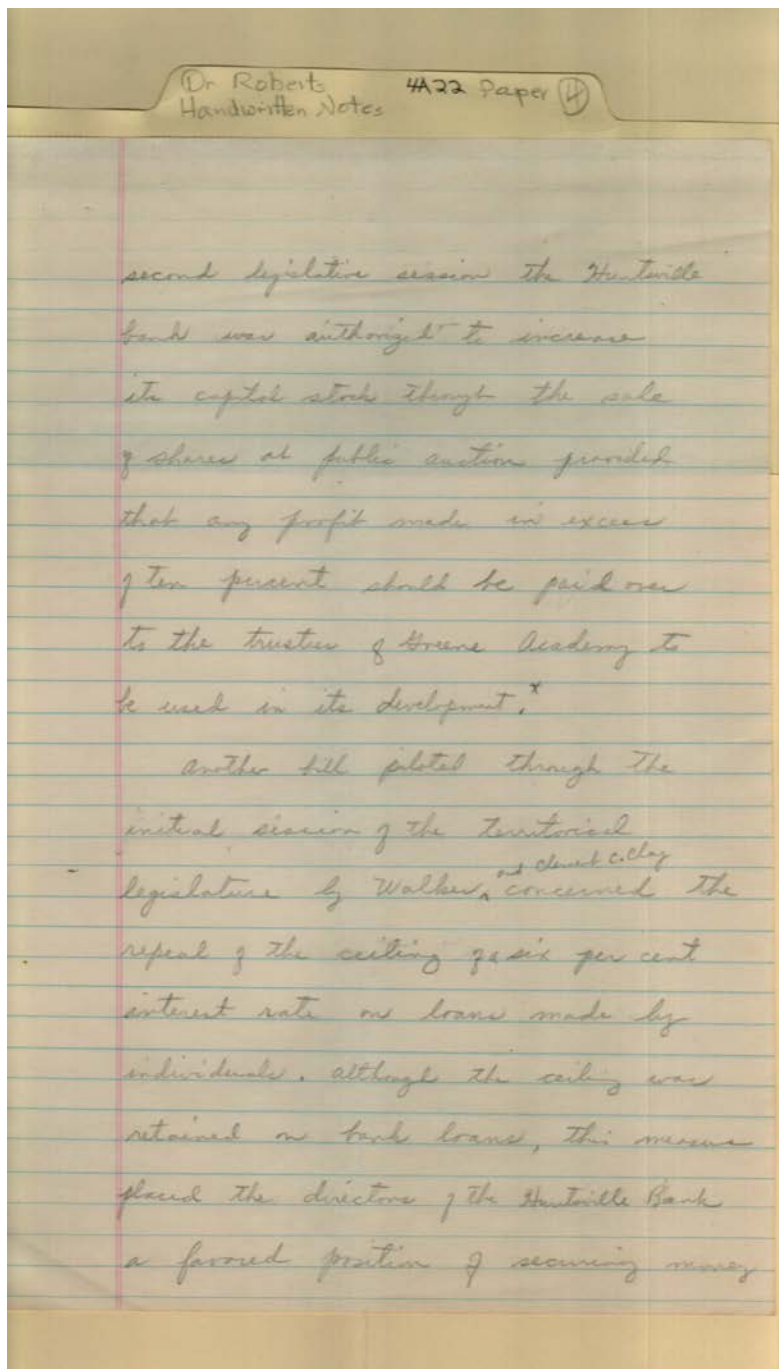 Dr Roberts 4A22 Paper 4
Handwritten Notes
second legislative session the Huntsville
bank was authorized to increase
its capital stock through the sale
of shares at public auction provided
that any profit made in excess
of ten percent should be paid over
to the trustees of Greene Academy to
be used in its development.x
Another bill piloted through the
initial session of the Territorial
and Clement C. Clay
legislature by Walker, concerned the
repeal of the ceiling of a six per cent
interest rate on loans made by
individuals. Although the ceiling was
retained on bank loans, this measure
placed the directors of the Huntsville Bank
a favored position of securing money